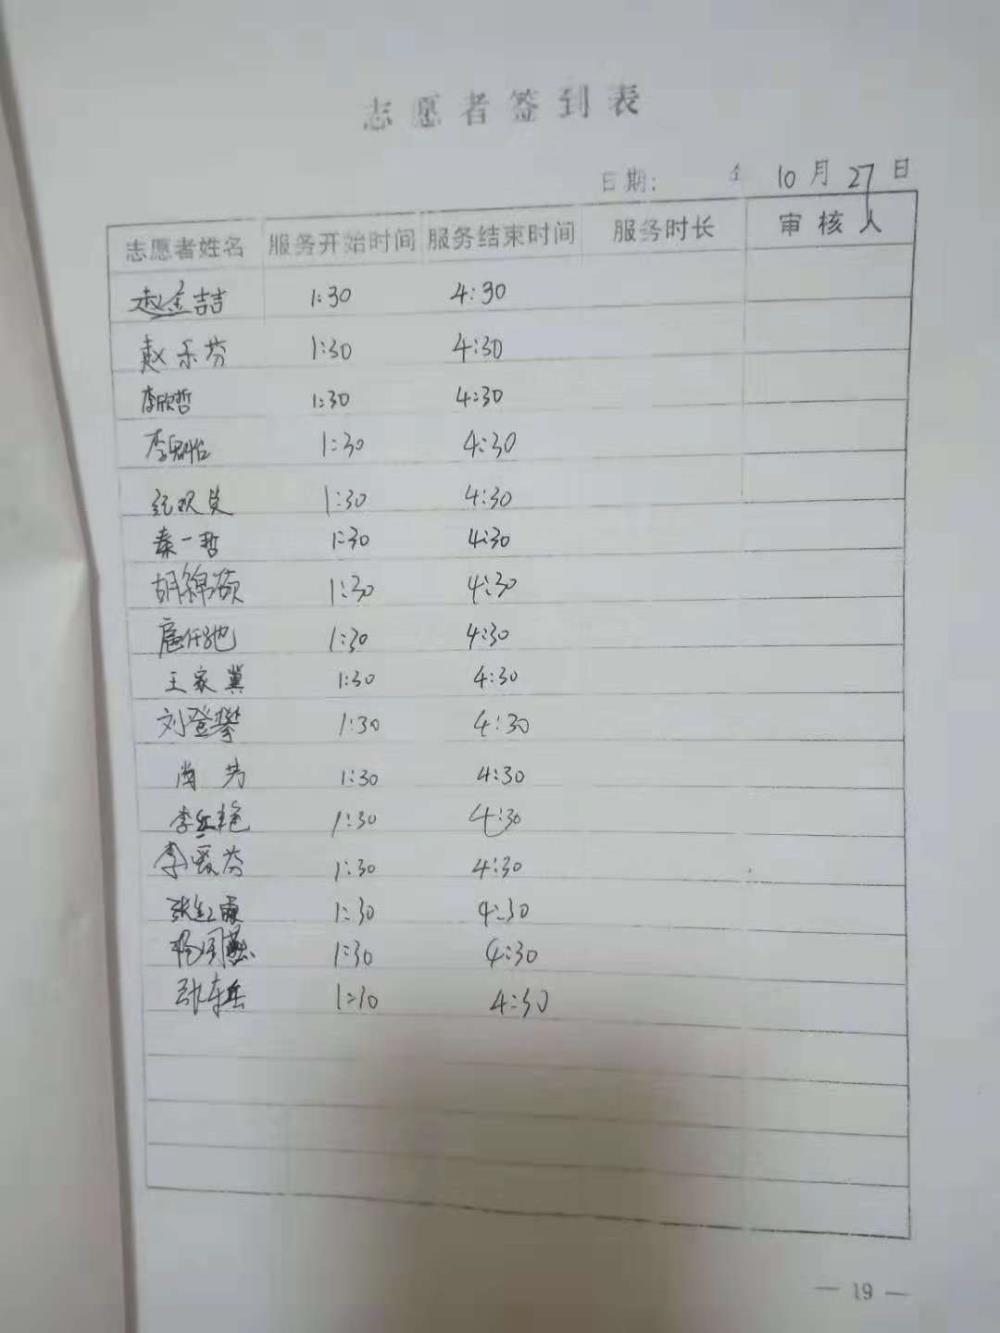 志愿者签到表
日期: 年 10月27日
志愿者姓名 服务开始时间 服务结束时间 服务时长 审核人
赵金喆 1:30 4:30
赵乐芬 1:30 4:30
李欣哲 1:30 4:30
李 1:30 4:30
纪双 1:30 4:30
秦一哲 1:30 4:30
胡锦 1:30 4:30
1:30 4:30
王家冀 1:30 4:30
刘登攀 1:30 4:30
尚芳 1:30 4:30
李红艳 1:30 4:30
李爱芬 1:30 4:30
张红霞 1:30 4:30
杨国燕 1:30 4:30
1:10 4:30
— 19 —